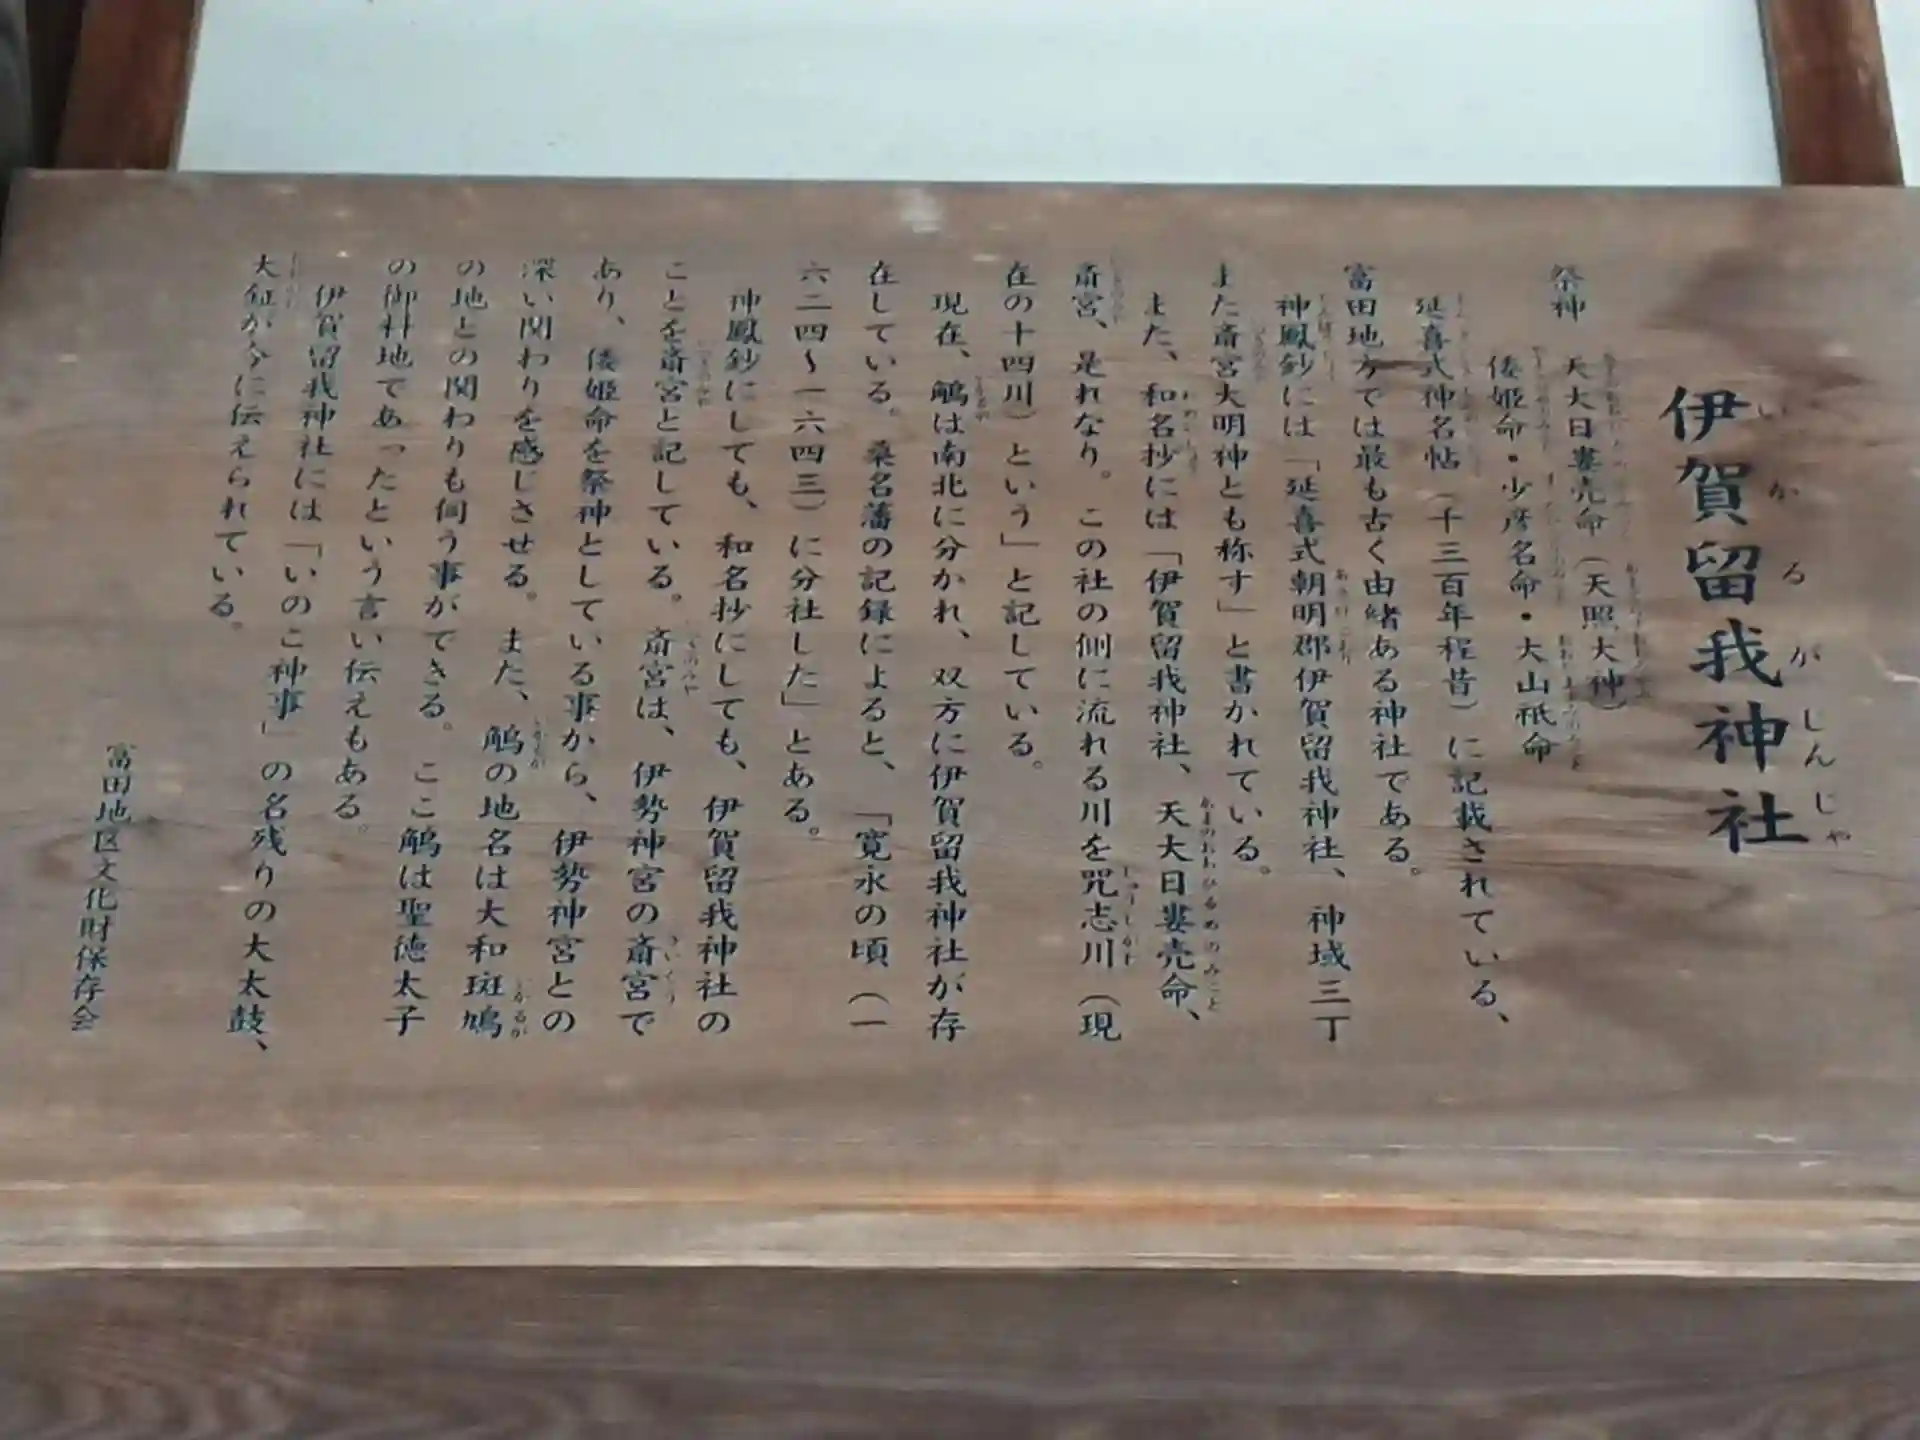 伊賀留我神社
いかるがしんじゃ
祭神 天大日孁売命(天照大神)
倭姫命・少彦名命・大山祇命
延喜式神名帖(千三百年程昔)に記載されている、
富田地方では最も古く由緒ある神社である。
神鳳鈔には「延喜式朝明郡伊賀留我神社、神域三丁
また斎宮大明神とも称す」と書かれている。
また、和名抄には「伊賀留我神社、天大日孁売命、
斎宮、是れなり。この社の側に流れる川を咒志川(現
在の十四川)という」と記している。
現在、鵤は南北に分かれ、双方に伊賀留我神社が存
在している。桑名藩の記録によると、「寛永の頃(一
六二四〜一六四三)に分社した」とある。
神鳳鈔にしても、和名抄にしても、伊賀留我神社の
ことを斎宮と記している。斎宮は、伊勢神宮の斎宮で
あり、倭姫命を祭神としている事から、伊勢神宮との
深い関わりを感じさせる。また、鵤の地名は大和斑鳩
の地との関わりも伺う事ができる。ここ鵤は聖徳太子
の御料地であったという言い伝えもある。
伊賀留我神社には「いのこ神事」の名残りの大太鼓、
大鉦が今に伝えられている。
富田地区文化財保存会